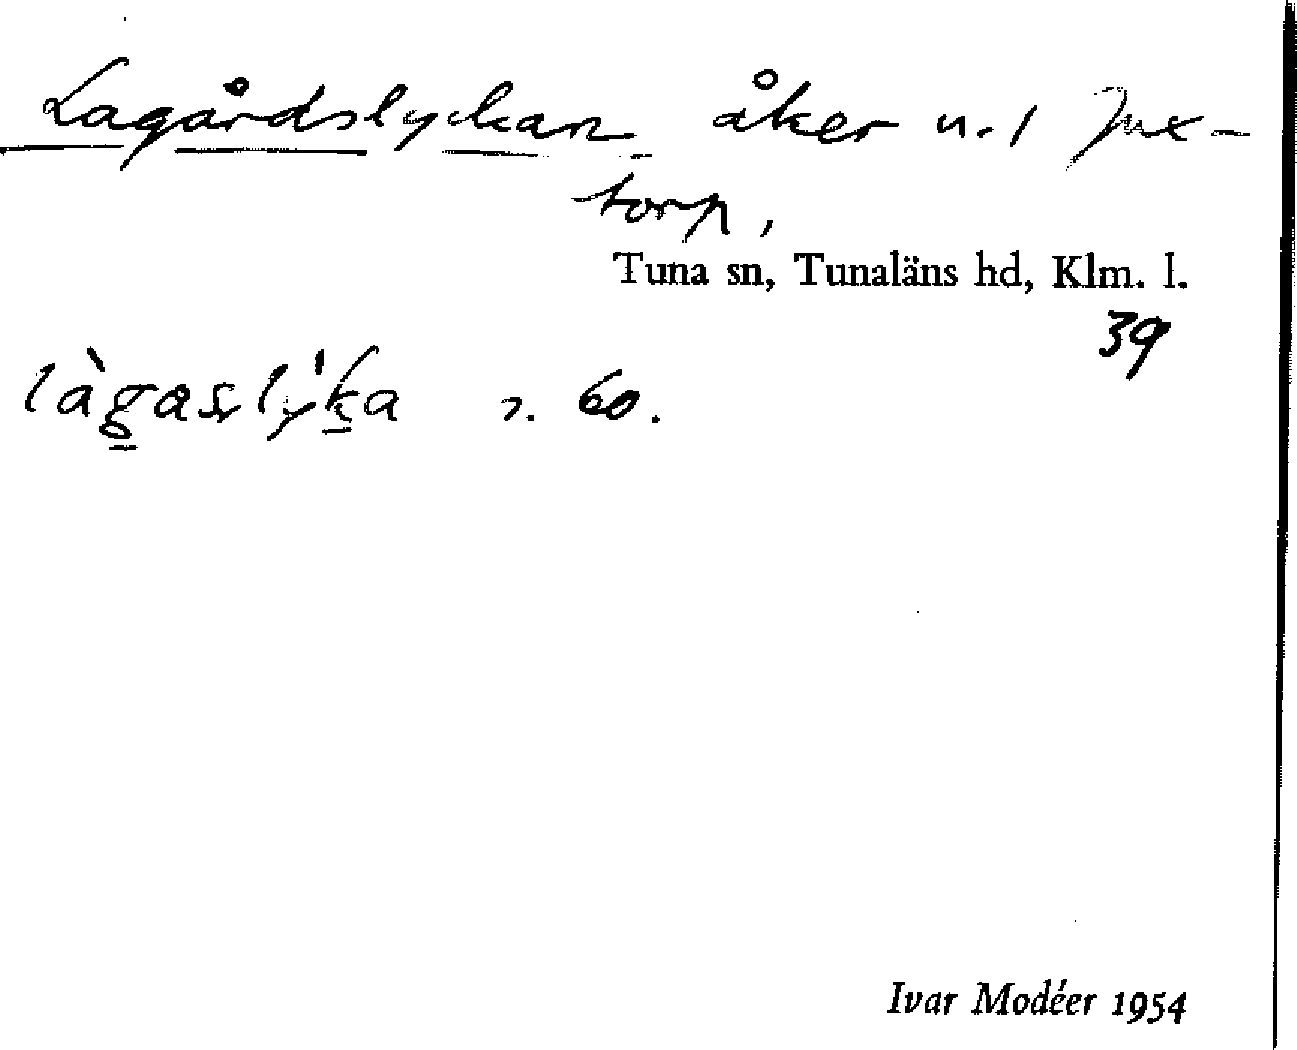 Lagårdslyckan åker n. 1 Jux-
torp,
Tuna sn, Tunaläns hd, Klm. l.
39
làgaslýka 2. 60.
Ivar Modéer 1954